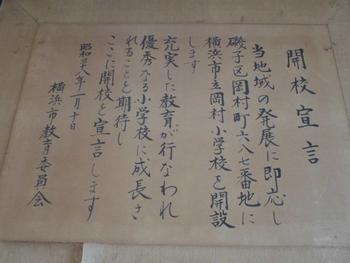 開校宣言
当地域の発展に即応し
磯子区岡村町六八七番地に
横浜市立岡村小学校を開設
します
充実した教育が行なわれ
優秀なる小学校に成長さ
れることを期待し
ここに開校を宣言します
昭和三十八年一月十日
横浜市教育委員会